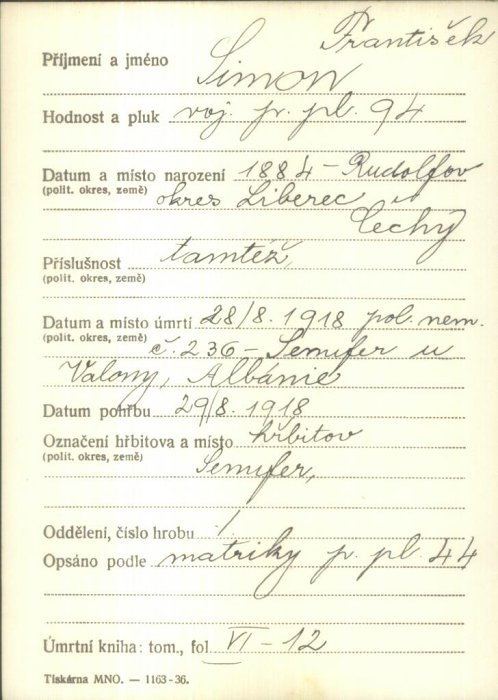 František
Příjmení a jméno Simon
Hodnost a pluk voj. p. pl. 94
Datum a místo narození 1884 - Rudolfov
(polit. okres, země) okres Liberec
Čechy
Příslušnost tamtéž,
(polit. okres, země)
Datum a místo úmrtí 28/8. 1918 pol. nem.
(polit. okres, země) č. 236 - Semifer u
Valony, Albánie
Datum pohřbu 29/8. 1918
Označení hřbitova a místo hřbitov
(polit. okres, země) Semifer,
Oddělení, číslo hrobu /
Opsáno podle matriky p. pl. 44
Úmrtní kniha: tom., fol VI - 12
Tiskárna MNO. — 1163-36.